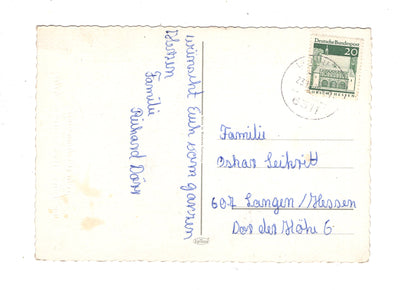 wünscht Euch vom ganzen
Herzen
Familie
Richard Dörr
Deutsche Bundespost
20
LORSCH/HESSEN
Familie
Oskar Seikritt
607 Langen/Hessen
Vor der Höhe 6